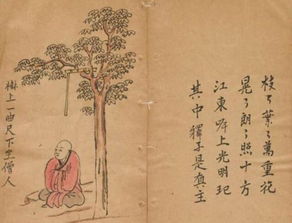 枝々葉々萬重祝
晃々朗々照十方
江東岸上光明玘
其中釋子是真主
樹上一曲尺下坐僧人